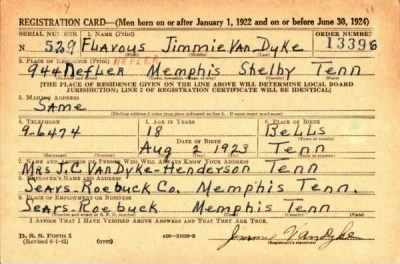 REGISTRATION CARD—(Men born on or after January 1, 1922 and on or before June 30, 1924)
SERIAL NUMBER 1. NAME (Print) ORDER NUMBER
N 529 FLAVOUS JIMMIE VAN DYKE 13396
2. PLACE OF RESIDENCE (Print) HEFLER
944 NEFLER MEMPHIS SHELBY TENN
[THE PLACE OF RESIDENCE GIVEN ON THE LINE ABOVE WILL DETERMINE LOCAL BOARD
JURISDICTION; LINE 2 OF REGISTRATION CERTIFICATE WILL BE IDENTICAL]
3. MAILING ADDRESS
SAME
4. TELEPHONE 5. AGE IN YEARS 6. PLACE OF BIRTH
9-6474 18 BELLS
DATE OF BIRTH
AUG 2 1923 TENN
7. NAME AND ADDRESS OF PERSON WHO WILL ALWAYS KNOW YOUR ADDRESS
MRS J.C. VAN DYKE-HENDERSON TENN
8. EMPLOYER'S NAME AND ADDRESS
SEARS-ROEBUCK CO. MEMPHIS TENN.
9. PLACE OF EMPLOYMENT OR BUSINESS
SEARS-ROEBUCK MEMPHIS TENN
I AFFIRM THAT I HAVE VERIFIED ABOVE ANSWERS AND THAT THEY ARE TRUE.
D. S. S. Form 1
(Revised 6-1-42)
Jimmie VanDyke
(Registrant's signature)